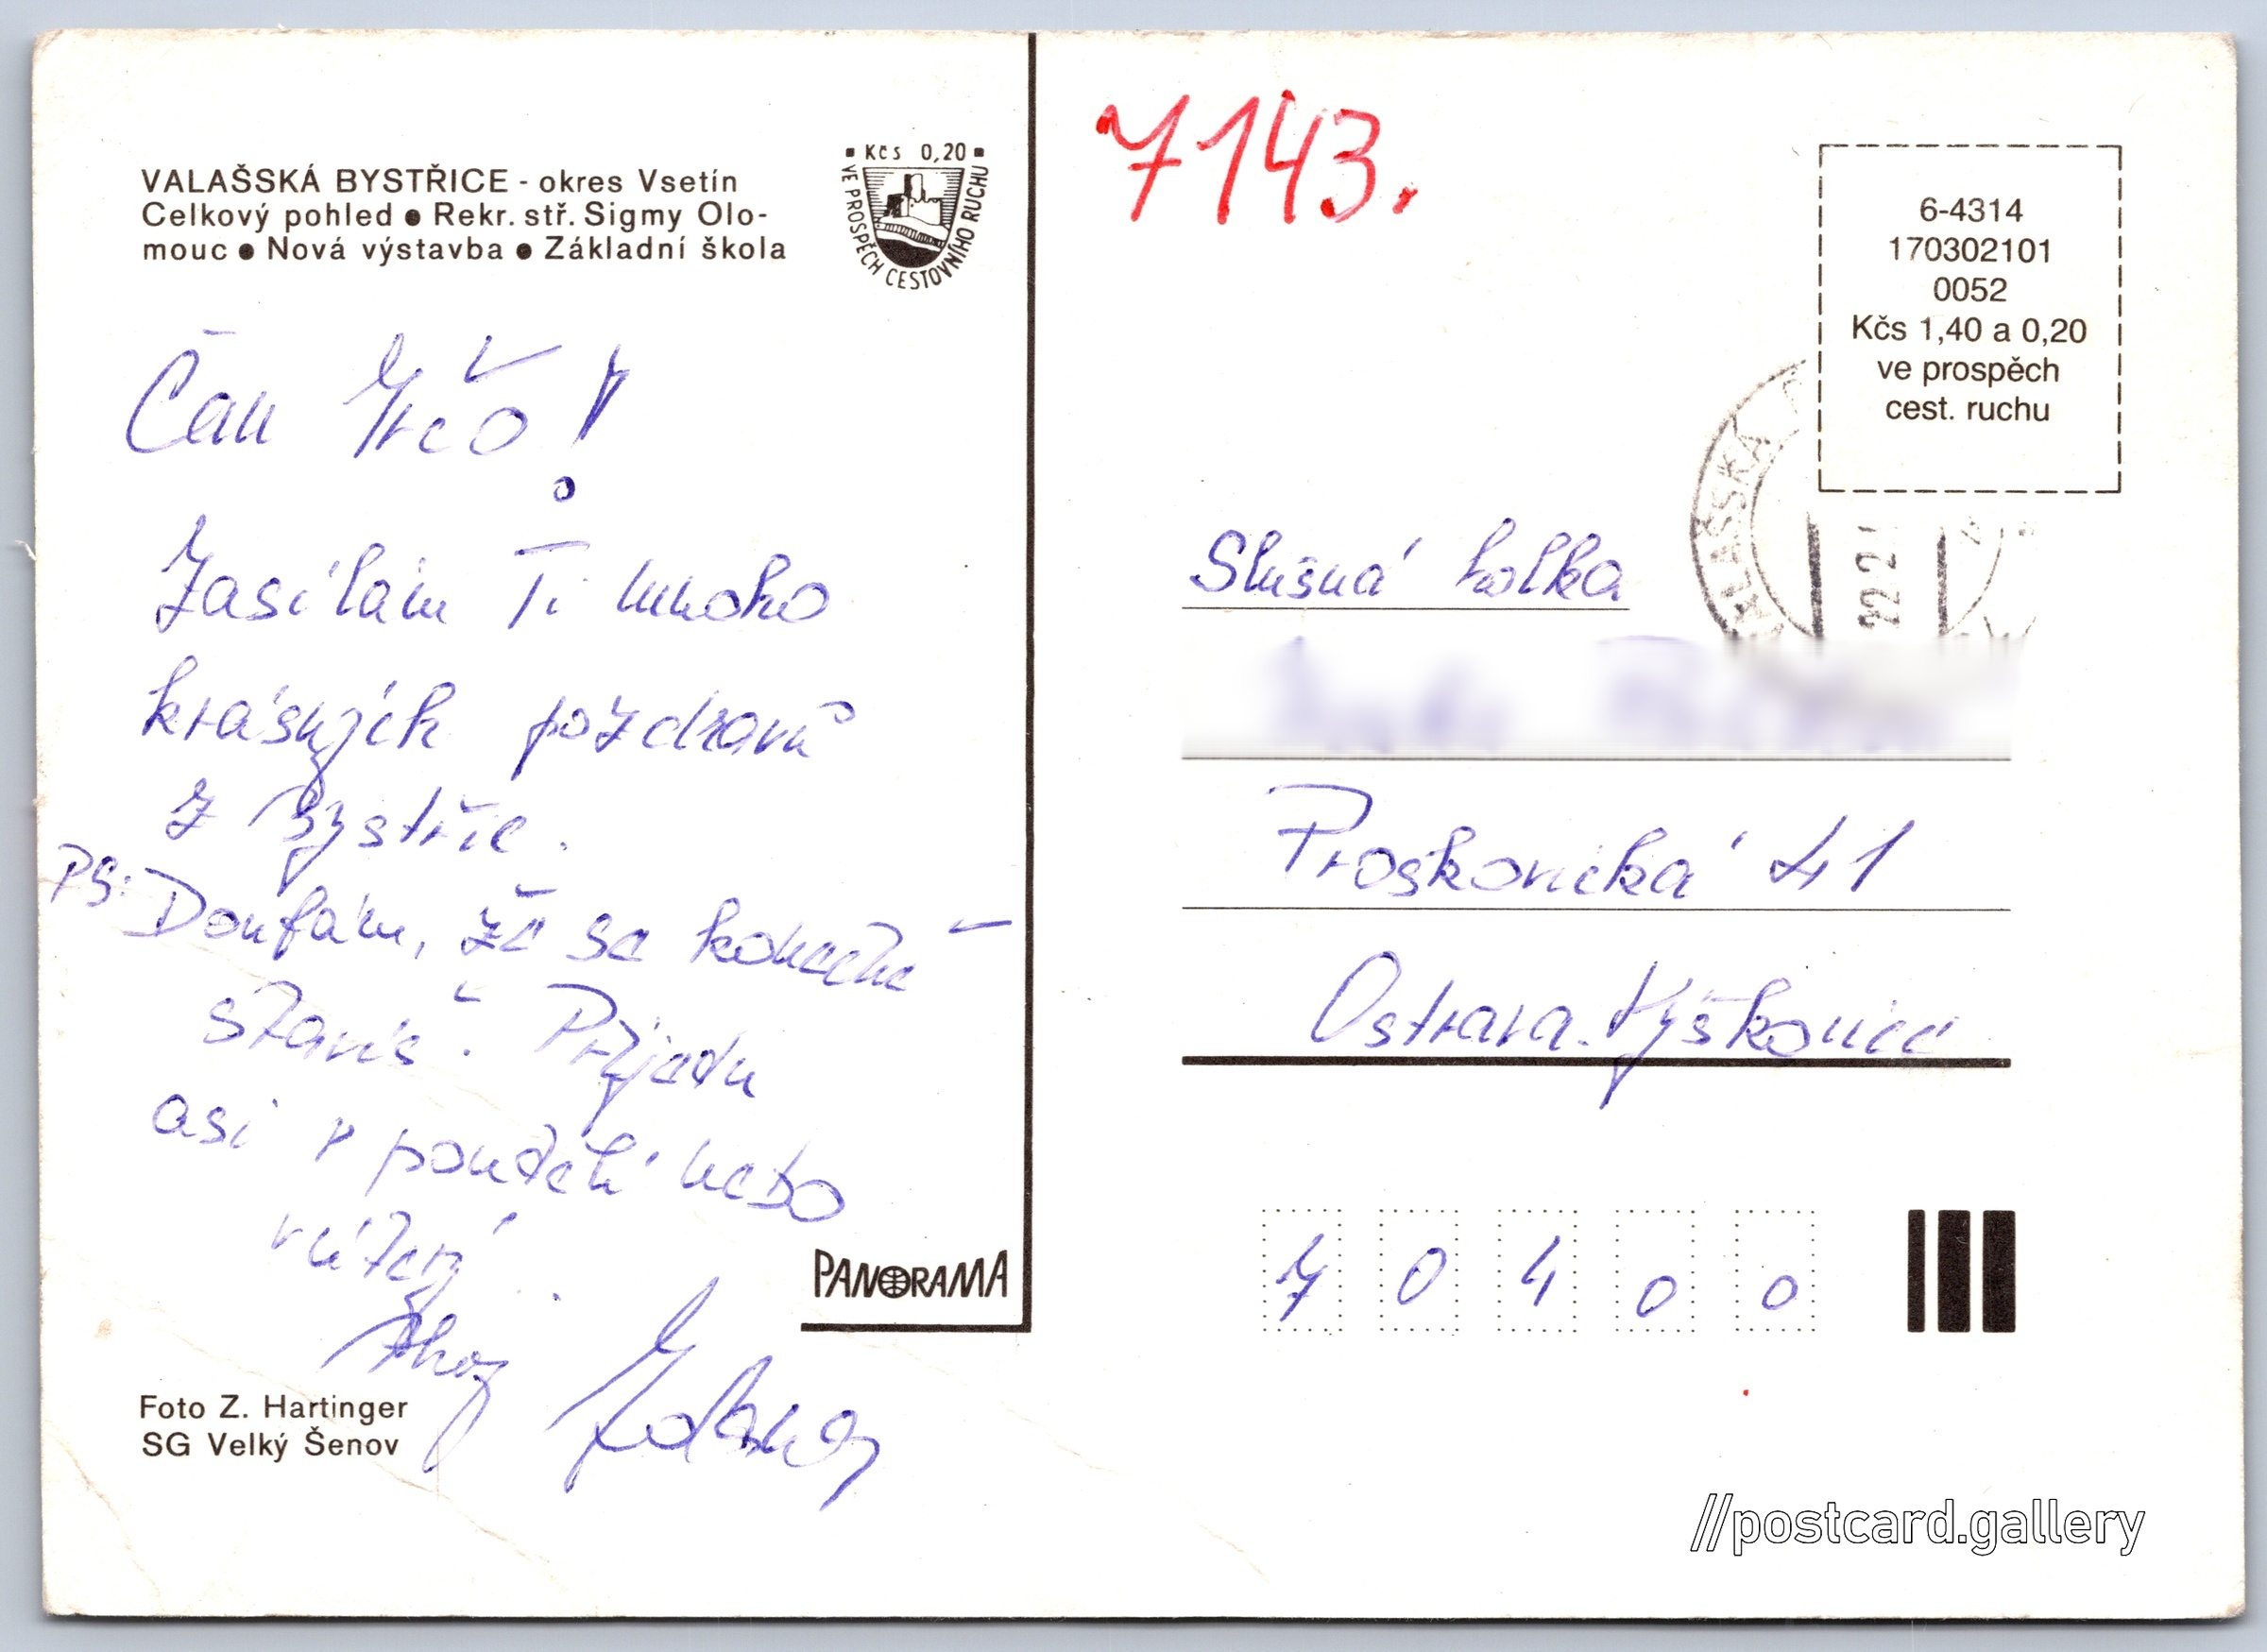 VALAŠSKÁ BYSTŘICE - okres Vsetín
Celkový pohled ● Rekr. stř. Sigmy Olo-
mouc ● Nová výstavba ● Základní škola
Kčs 0,20
VE PROSPĚCH CESTOVNÍHO RUCHU
Čau
Zasílám Ti mnoho
krásných pozdravů
z Bystřic.
PS: Doufám, že se konečně
stavíš. Přijedu
asi v pondělí nebo
v úterý.
Ahoj
PANORAMA
Foto Z. Hartinger
SG Velký Šenov
7143.
6-4314
170302101
0052
Kčs 1,40 a 0,20
ve prospěch
cest. ruchu
VALAŠSKÁ
22 2
Slušná holka
Proskovická 41
Ostrava-Výškovice
70400
//postcard.gallery